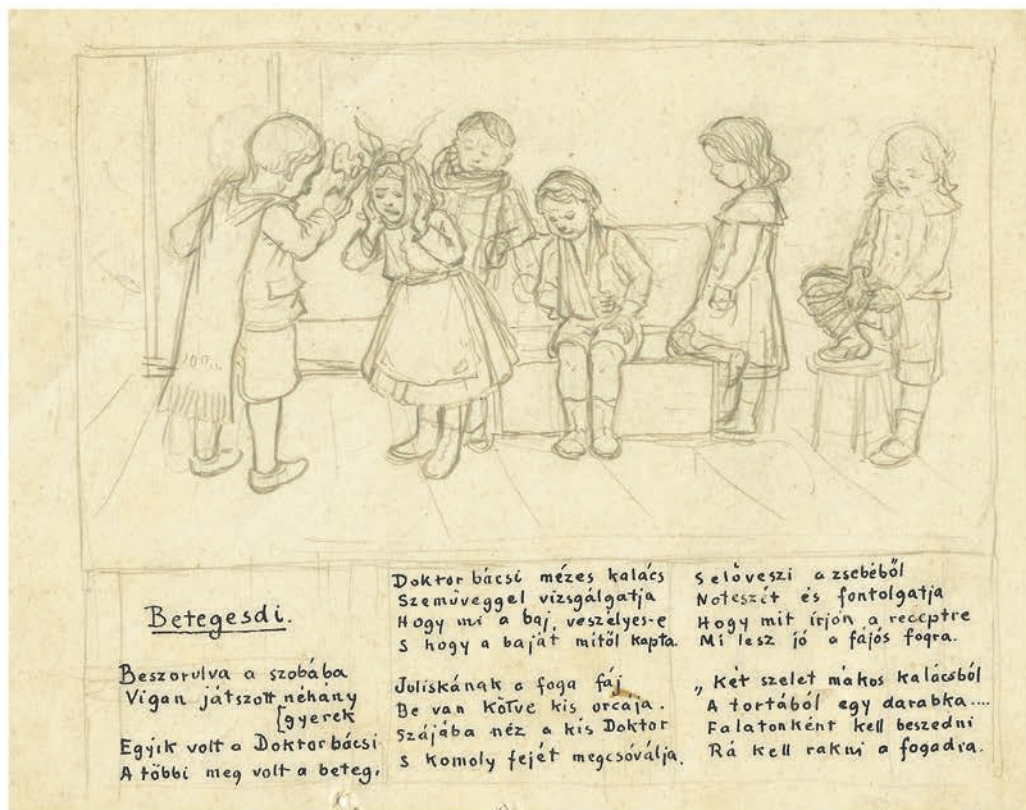 Betegesdi.
Beszorulva a szobába
Vígan játszott néhány
[gyerek
Egyik volt a Doktor bácsi
A többi meg volt a beteg.
Doktor bácsi mézes kalács
Szemüveggel vizsgálgatja
Hogy mi a baj, veszélyes-e
S hogy a baját mitől kapta.
Juliskának a foga fáj
Be van kötve kis orcája.
Szájába néz a kis Doktor
S komoly fejét megcsóválja.
S elöveszi a zsebéből
Noteszét és fontolgatja
Hogy mit írjon a receptre
Mi lesz jó a fájós fogra.
„Két szelet mákos kalácsból
A tortából egy darabka....
Falatonként kell beszedni
Rá kell rakni a fogadra.